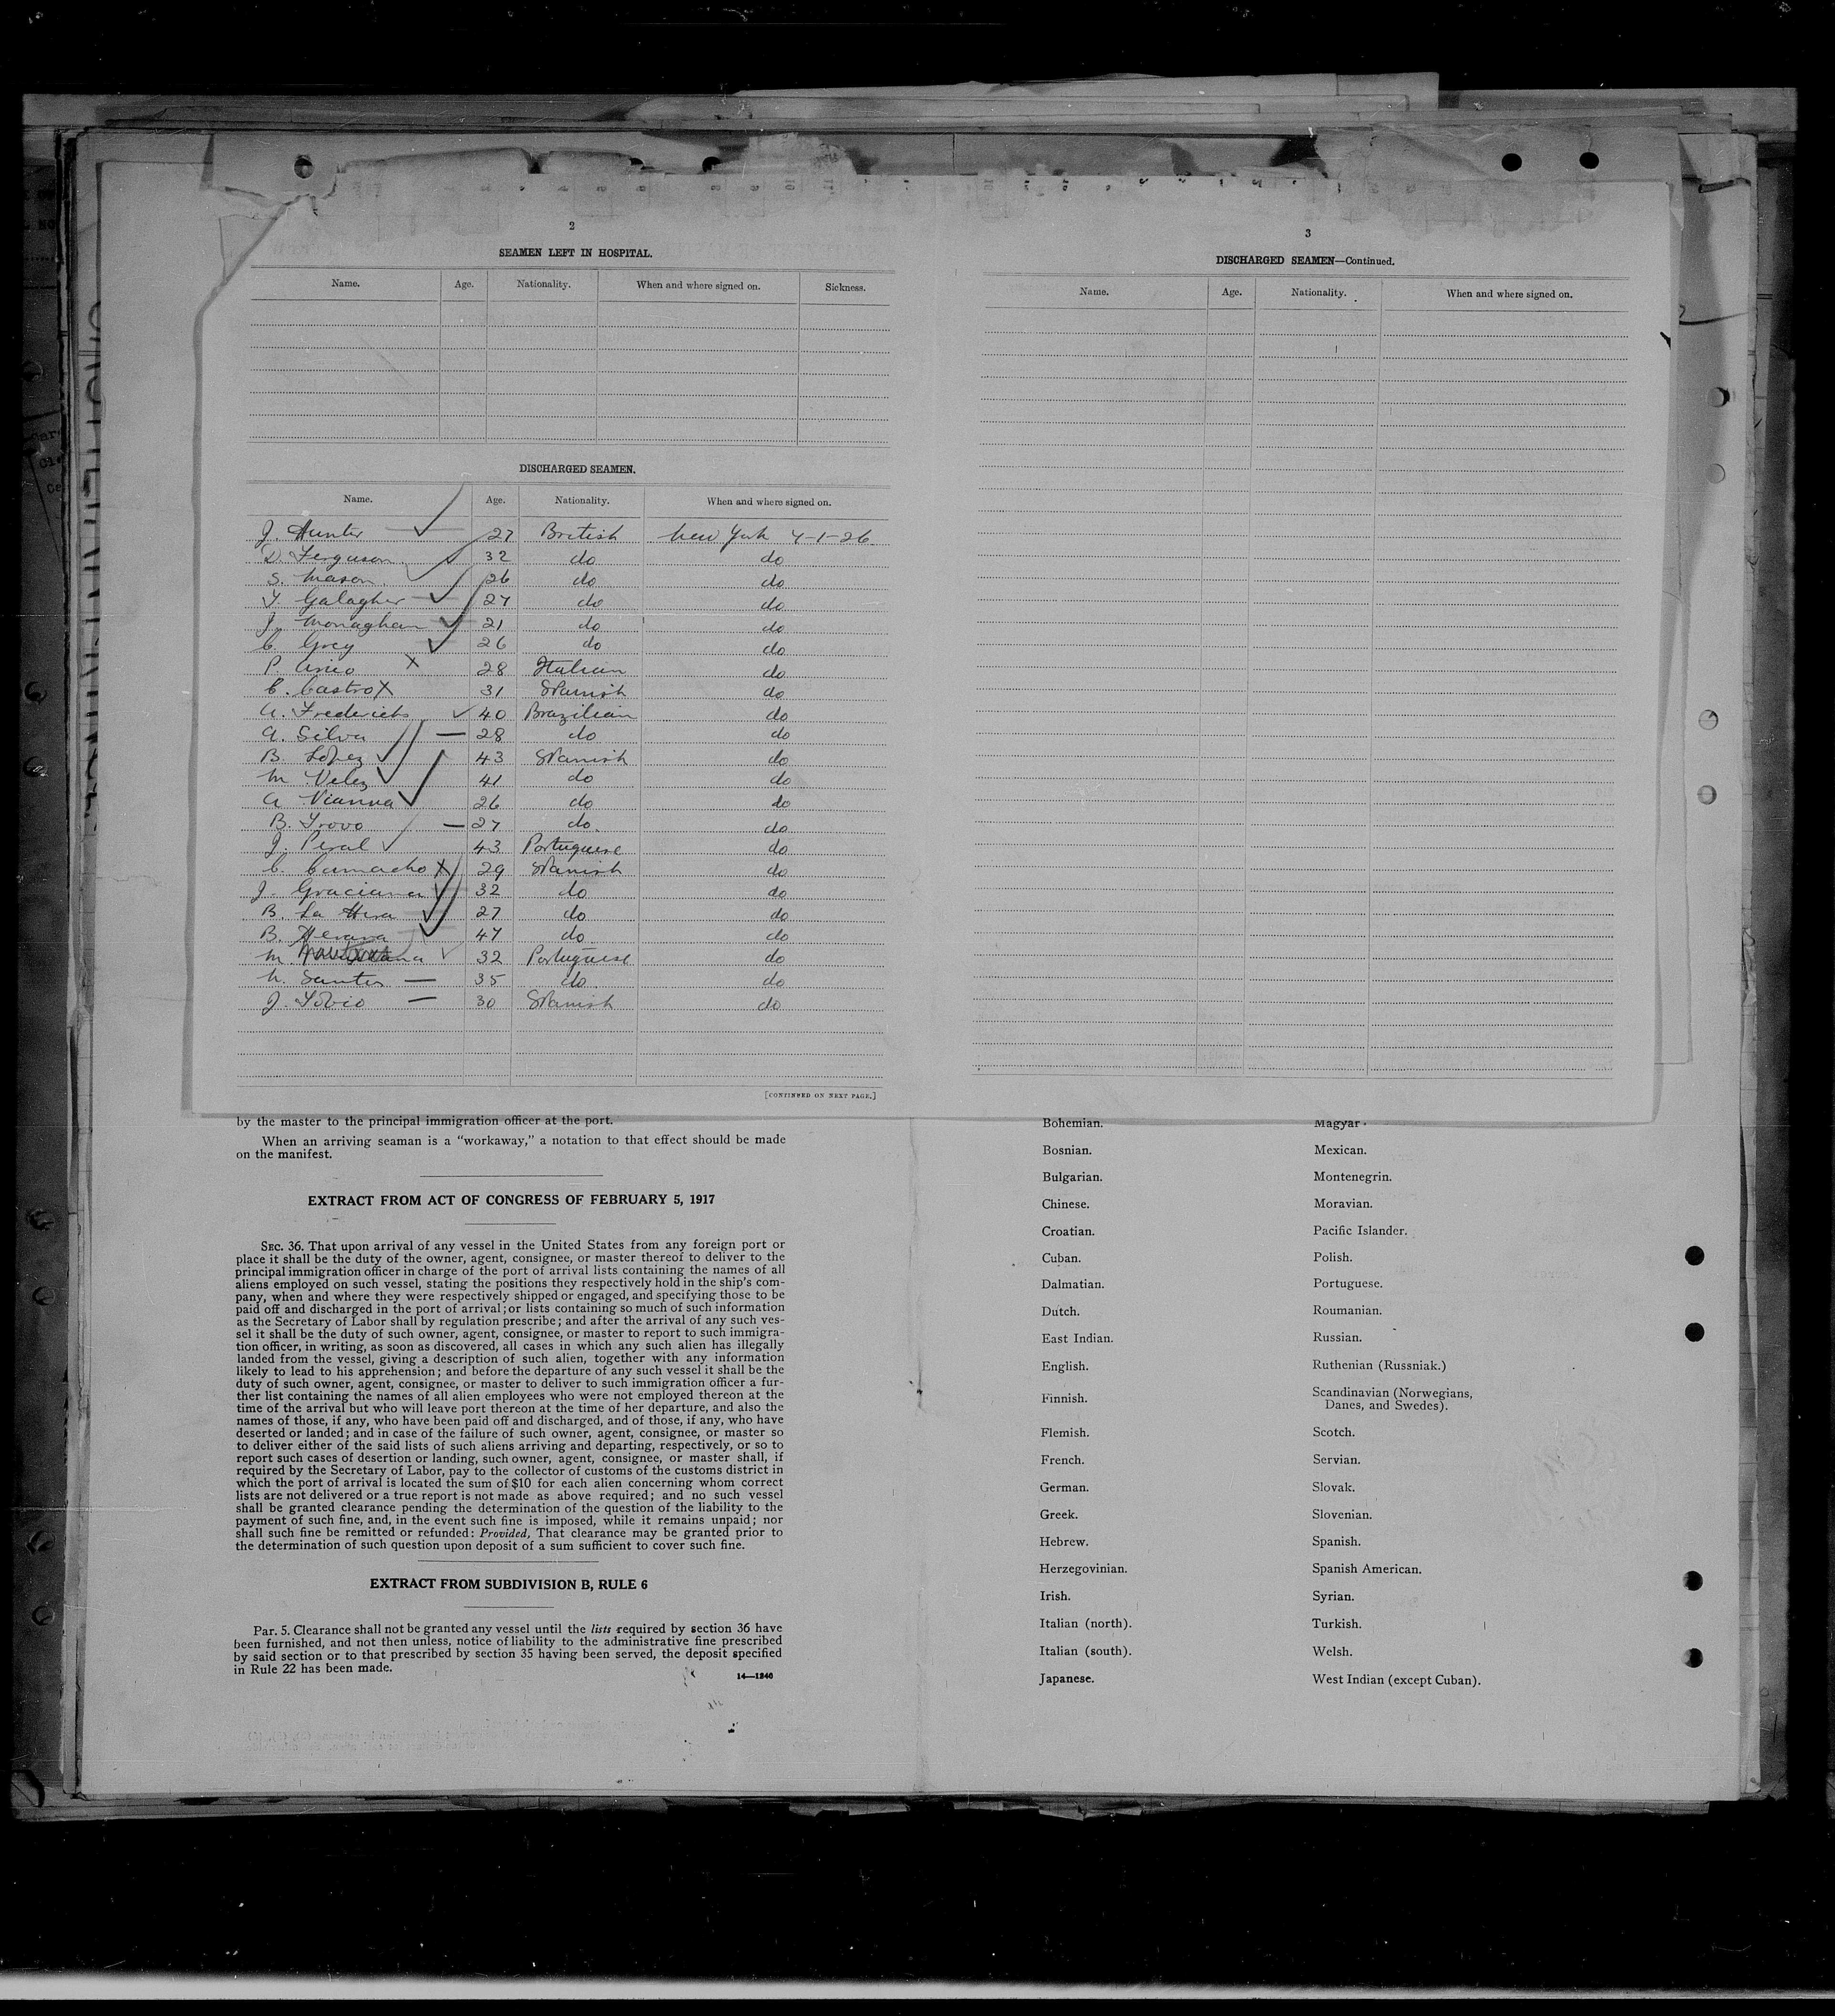 2
SEAMEN LEFT IN HOSPITAL.
Name. Age. Nationality. When and where signed on. Sickness.
DISCHARGED SEAMEN.
Name. Age. Nationality. When and where signed on.
J. Hunter 27 British New York 7-1-26
D. Ferguson 32 do do
S. Mason 26 do do
Galagher 27 do do
J. Monaghan 21 do do
C. Grey 26 do do
P. 28 Italian do
C. Castro X 31 Spanish do
A. Fredericks 40 Brazilian do
A. Silva — 28 do do
B. Lopez 43 Spanish do
M. Velez 41 do do
A. Vianna 26 do do
B. Trovo — 27 do do
J. Peral 43 Portuguese do
C. Camacho X 29 Spanish do
J. Graciana 32 do do
B. La Hera 27 do do
B. 47 do do
M. 32 Portuguese do
M. Santos — 35 do do
J. Tobio — 30 Spanish do
[CONTINUED ON NEXT PAGE.]
3
DISCHARGED SEAMEN—Continued.
Name. Age. Nationality. When and where signed on.
by the master to the principal immigration officer at the port.
When an arriving seaman is a "workaway," a notation to that effect should be made
on the manifest.
EXTRACT FROM ACT OF CONGRESS OF FEBRUARY 5, 1917
SEC. 36. That upon arrival of any vessel in the United States from any foreign port or
place it shall be the duty of the owner, agent, consignee, or master thereof to deliver to the
principal immigration officer in charge of the port of arrival lists containing the names of all
aliens employed on such vessel, stating the positions they respectively hold in the ship's com-
pany, when and where they were respectively shipped or engaged, and specifying those to be
paid off and discharged in the port of arrival; or lists containing so much of such information
as the Secretary of Labor shall by regulation prescribe; and after the arrival of any such ves-
sel it shall be the duty of such owner, agent, consignee, or master to report to such immigra-
tion officer, in writing, as soon as discovered, all cases in which any such alien has illegally
landed from the vessel, giving a description of such alien, together with any information
likely to lead to his apprehension; and before the departure of any such vessel it shall be the
duty of such owner, agent, consignee, or master to deliver to such immigration officer a fur-
ther list containing the names of all alien employees who were not employed thereon at the
time of the arrival but who will leave port thereon at the time of her departure, and also the
names of those, if any, who have been paid off and discharged, and of those, if any, who have
deserted or landed; and in case of the failure of such owner, agent, consignee, or master so
to deliver either of the said lists of such aliens arriving and departing, respectively, or so to
report such cases of desertion or landing, such owner, agent, consignee, or master shall, if
required by the Secretary of Labor, pay to the collector of customs of the customs district in
which the port of arrival is located the sum of $10 for each alien concerning whom correct
lists are not delivered or a true report is not made as above required; and no such vessel
shall be granted clearance pending the determination of the question of the liability to the
payment of such fine, and, in the event such fine is imposed, while it remains unpaid; nor
shall such fine be remitted or refunded: Provided, That clearance may be granted prior to
the determination of such question upon deposit of a sum sufficient to cover such fine.
EXTRACT FROM SUBDIVISION B, RULE 6
Par. 5. Clearance shall not be granted any vessel until the lists required by section 36 have
been furnished, and not then unless, notice of liability to the administrative fine prescribed
by said section or to that prescribed by section 35 having been served, the deposit specified
in Rule 22 has been made.
14—1240
Bohemian. Magyar.
Bosnian. Mexican.
Bulgarian. Montenegrin.
Chinese. Moravian.
Croatian. Pacific Islander.
Cuban. Polish.
Dalmatian. Portuguese.
Dutch. Roumanian.
East Indian. Russian.
English. Ruthenian (Russniak.)
Finnish. Scandinavian (Norwegians,
Danes, and Swedes).
Flemish. Scotch.
French. Servian.
German. Slovak.
Greek. Slovenian.
Hebrew. Spanish.
Herzegovinian. Spanish American.
Irish. Syrian.
Italian (north). Turkish.
Italian (south). Welsh.
Japanese. West Indian (except Cuban).